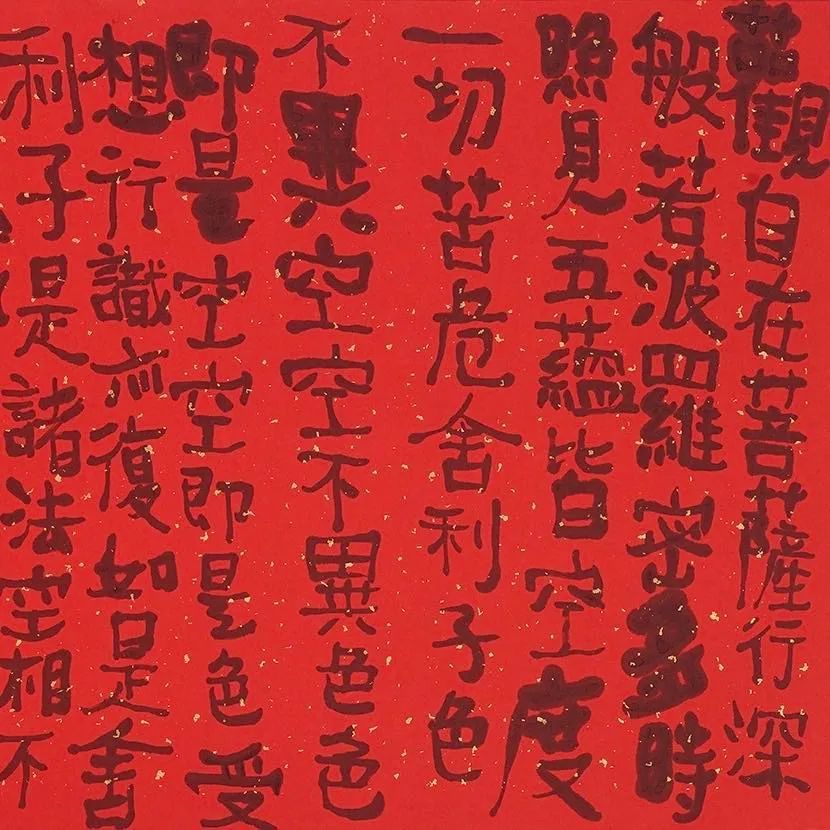 觀自在菩薩行深
般若波羅密多時
照見五蘊皆空度
一切苦危舍利子色
不異空空不異色色
即是空空即是色受
想行識亦復如是舍
利子是諸法空相不